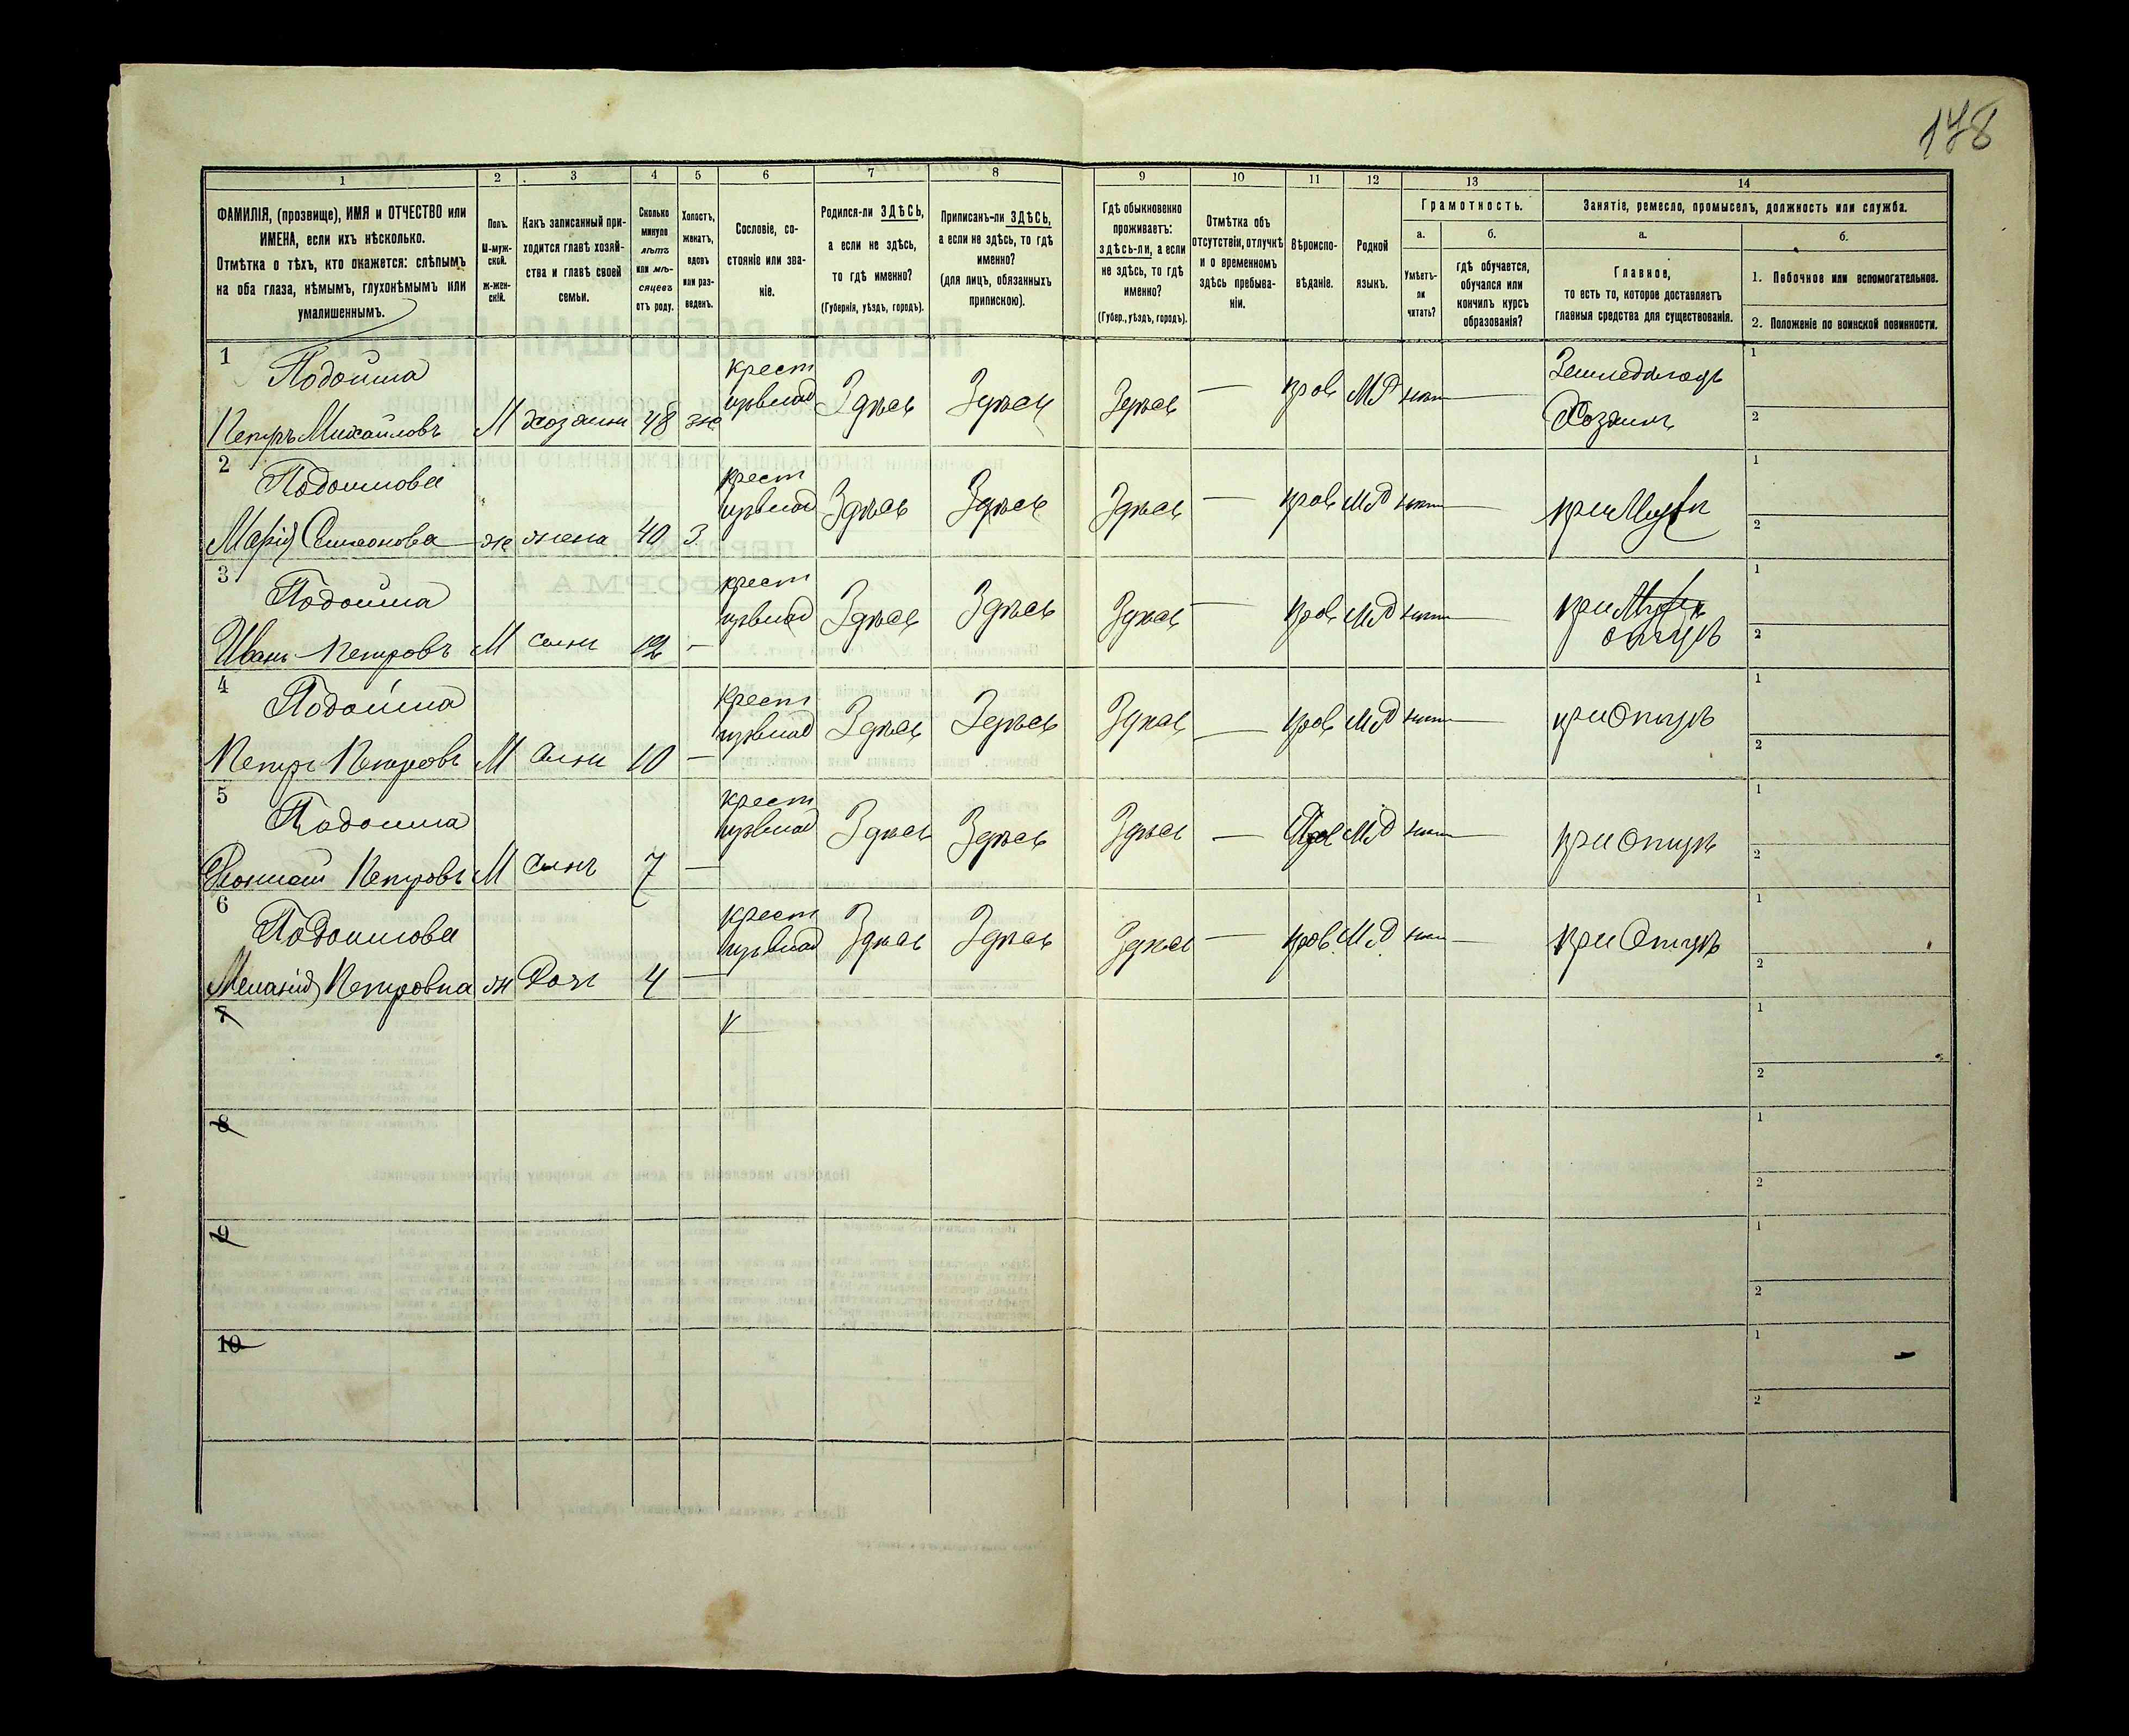 178
1 2 3 4 5 6 7 8 9 10 11 12 13 14
ФАМИЛІЯ, (прозвище), ИМЯ и ОТЧЕСТВО или
ИМЕНА, если ихъ нѣсколько.
Отмѣтка о тѣхъ, кто окажется: слѣпымъ
на оба глаза, нѣмымъ, глухонѣмымъ или
умалишеннымъ.
Полъ.
М-муж-
ской.
Ж-жен-
скій.
Какъ записанный при-
ходится главѣ хозяй-
ства и главѣ своей
семьи.
Сколько
минуло
лѣтъ
или мѣ-
сяцевъ
отъ роду.
Холостъ,
женатъ,
вдовъ
или раз-
веденъ.
Сословіе, со-
стояніе или зва-
ніе.
Родился-ли ЗДѢСЬ,
а если не здѣсь,
то гдѣ именно?
(Губернія, уѣздъ, городъ).
Приписанъ-ли ЗДѢСЬ,
а если не здѣсь, то гдѣ
именно?
(для лицъ, обязанныхъ
припискою).
Гдѣ обыкновенно
проживаетъ:
здѣсь-ли, а если
не здѣсь, то гдѣ
именно?
(Губер., уѣздъ, городъ).
Отмѣтка объ
отсутствіи, отлучкѣ
и о временномъ
здѣсь пребыва-
ніи.
Вѣроиспо-
вѣданіе.
Родной
языкъ.
Грамотность.
а.
Умѣетъ-
ли
читать?
б.
гдѣ обучается,
обучался или
кончилъ курсъ
образованія?
Занятіе, ремесло, промыселъ, должность или служба.
а.
Главное,
то есть то, которое доставляетъ
главныя средства для существованія.
б.
1. Побочное или вспомогательное.
2. Положеніе по воинской повинности.
1 Подойма крест 1
Петръ Михайловъ М хозяин 48 же Здѣсь Здѣсь Здѣсь — прав МД нѣт — Земледѣлецъ
Хозяинъ 2
2 Подоимова крест 1
Марія Симеонова же жена 40 З. Здѣсь Здѣсь Здѣсь — прав МД нѣт — при Мужѣ 2
3 Подойма крест 1
Иванъ Петровъ М сынъ 12 - Здѣсь Здѣсь Здѣсь — прав МД нѣт — при Мужѣ
отцѣ 2
4 Подойма крест 1
Петръ Петровъ М сынъ 10 — Здѣсь Здѣсь Здѣсь — прав МД нѣт — при Отцѣ 2
5 Подоима крест 1
Петровъ М сынъ 7 — Здѣсь Здѣсь Здѣсь — Прав МД нѣт — при Отцѣ 2
6 Подоимова крест 1
Меланія Петровна ж Дочь 4 — Здѣсь Здѣсь Здѣсь — прав. МД нѣт — при Отцѣ 2
7 1
2
8 1
2
9 1
2
10 1
2